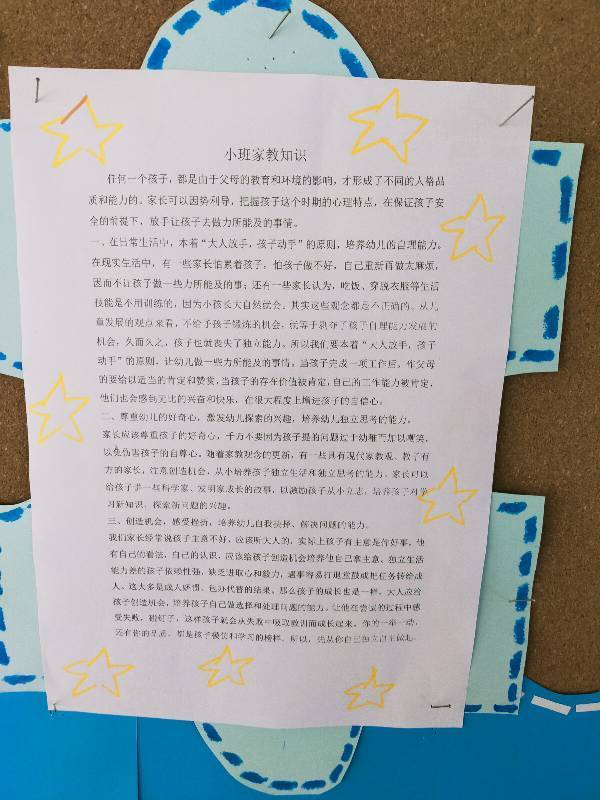 小班家教知识
任何一个孩子，都是由于父母的教育和环境的影响，才形成了不同的人格品
质和能力的。家长可以因势利导，把握孩子这个时期的心理特点，在保证孩子安
全的前提下，放手让孩子去做力所能及的事情。
一、在日常生活中，本着“大人放手，孩子动手”的原则，培养幼儿的自理能力。
在现实生活中，有一些家长怕累着孩子，怕孩子做不好，自己重新再做太麻烦，
因而不让孩子做一些力所能及的事；还有一些家长认为，吃饭、穿脱衣服等生活
技能是不用训练的，因为小孩长大自然就会。其实这些观念都是不正确的。从儿
童发展的观点来看，不给予孩子锻炼的机会，就等于剥夺了孩子自理能力发展的
机会，久而久之，孩子也就丧失了独立能力。所以我们要本着“大人放手，孩子
动手”的原则，让幼儿做一些力所能及的事情。当孩子完成一项工作后，作父母
的要给以适当的肯定和赞赏，当孩子的存在价值被肯定，自己的工作能力被肯定，
他们也会感到无比的兴奋和快乐，在很大程度上增进孩子的自信心。
二、尊重幼儿的好奇心，激发幼儿探索的兴趣，培养幼儿独立思考的能力。
家长应该尊重孩子的好奇心，千万不要因为孩子提的问题过于幼稚而加以嘲笑，
以免伤害孩子的自尊心。随着家教观念的更新，有一些具有现代家教观、教子有
方的家长，注意创造机会，从小培养孩子独立生活和独立思考的能力。家长可以
给孩子讲一些科学家、发明家成长的故事，以激励孩子从小立志，培养孩子对学
习新知识、探索新问题的兴趣。
三、创造机会，感受挫折，培养幼儿自我抉择、解决问题的能力。
我们家长经常说孩子主意不好，应该听大人的，实际上孩子有主意是件好事，他
有自己的看法，自己的认识，应该给孩子创造机会培养他自己拿主意、独立生活
能力差的孩子依赖性强，缺乏进取心和毅力，遇事容易打退堂鼓或把任务转给成
人。这大多是成人娇惯、包办代替的结果，那么孩子的成长也是一样。大人应给
孩子创造机会，培养孩子自己做选择和处理问题的能力。让他在尝试的过程中感
受失败，碰钉子，这样孩子就会从失败中吸取教训而成长起来。你的一举一动，
还有你的品质，都是孩子模仿和学习的榜样。所以，先从你自己独立自主做起。